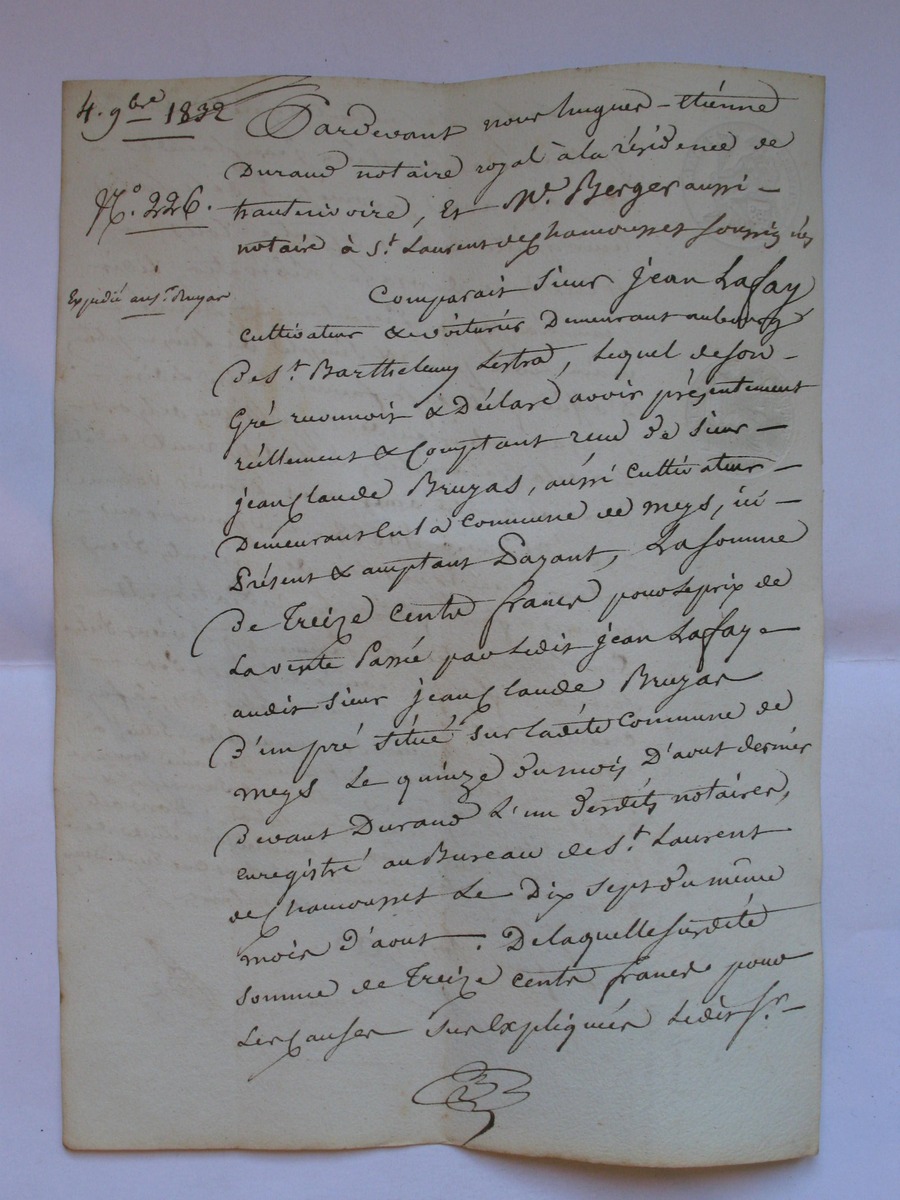 4. 9bre 1832
N.o 226.
Expédié au sr. Bruyas
Pardevant nous hugues-étiénne
Durand notaire royal à la résidence de
hauterivoire, Et Me. Berger aussi-
notaire à St. Laurent de Chamousset soussignés
Comparait Sieur Jean Lafay
cultivateur & voiturier Demeurant au bourg
De St. Barthelemy Lestra, Lequel de son-
Gré reconnoit & Déclare avoir présentement
réellement & Comptant reçu de Sieur-
jean Claude Bruyas, aussi cultivateur-
Demeurant En la commune de meys, ici-
Présent & acceptant Payant, La Somme
De Treize cents francs pour le prix de
La vente Passée par Ledit jean Lafay-
audit Sieur jean Claude Bruyas
D'un pré situé sur ladite Commune de
meys Le quinze du mois D'aout dernier
Devant Durand L'un desdits notaires,
enregistré au Bureau de St. Laurent
de Chamousset Le Dix sept du même
mois d'aout. De laquelle Susdite
Somme de Treize cents francs pour
Les Causes Sus Expliquées Ledit Sr.-